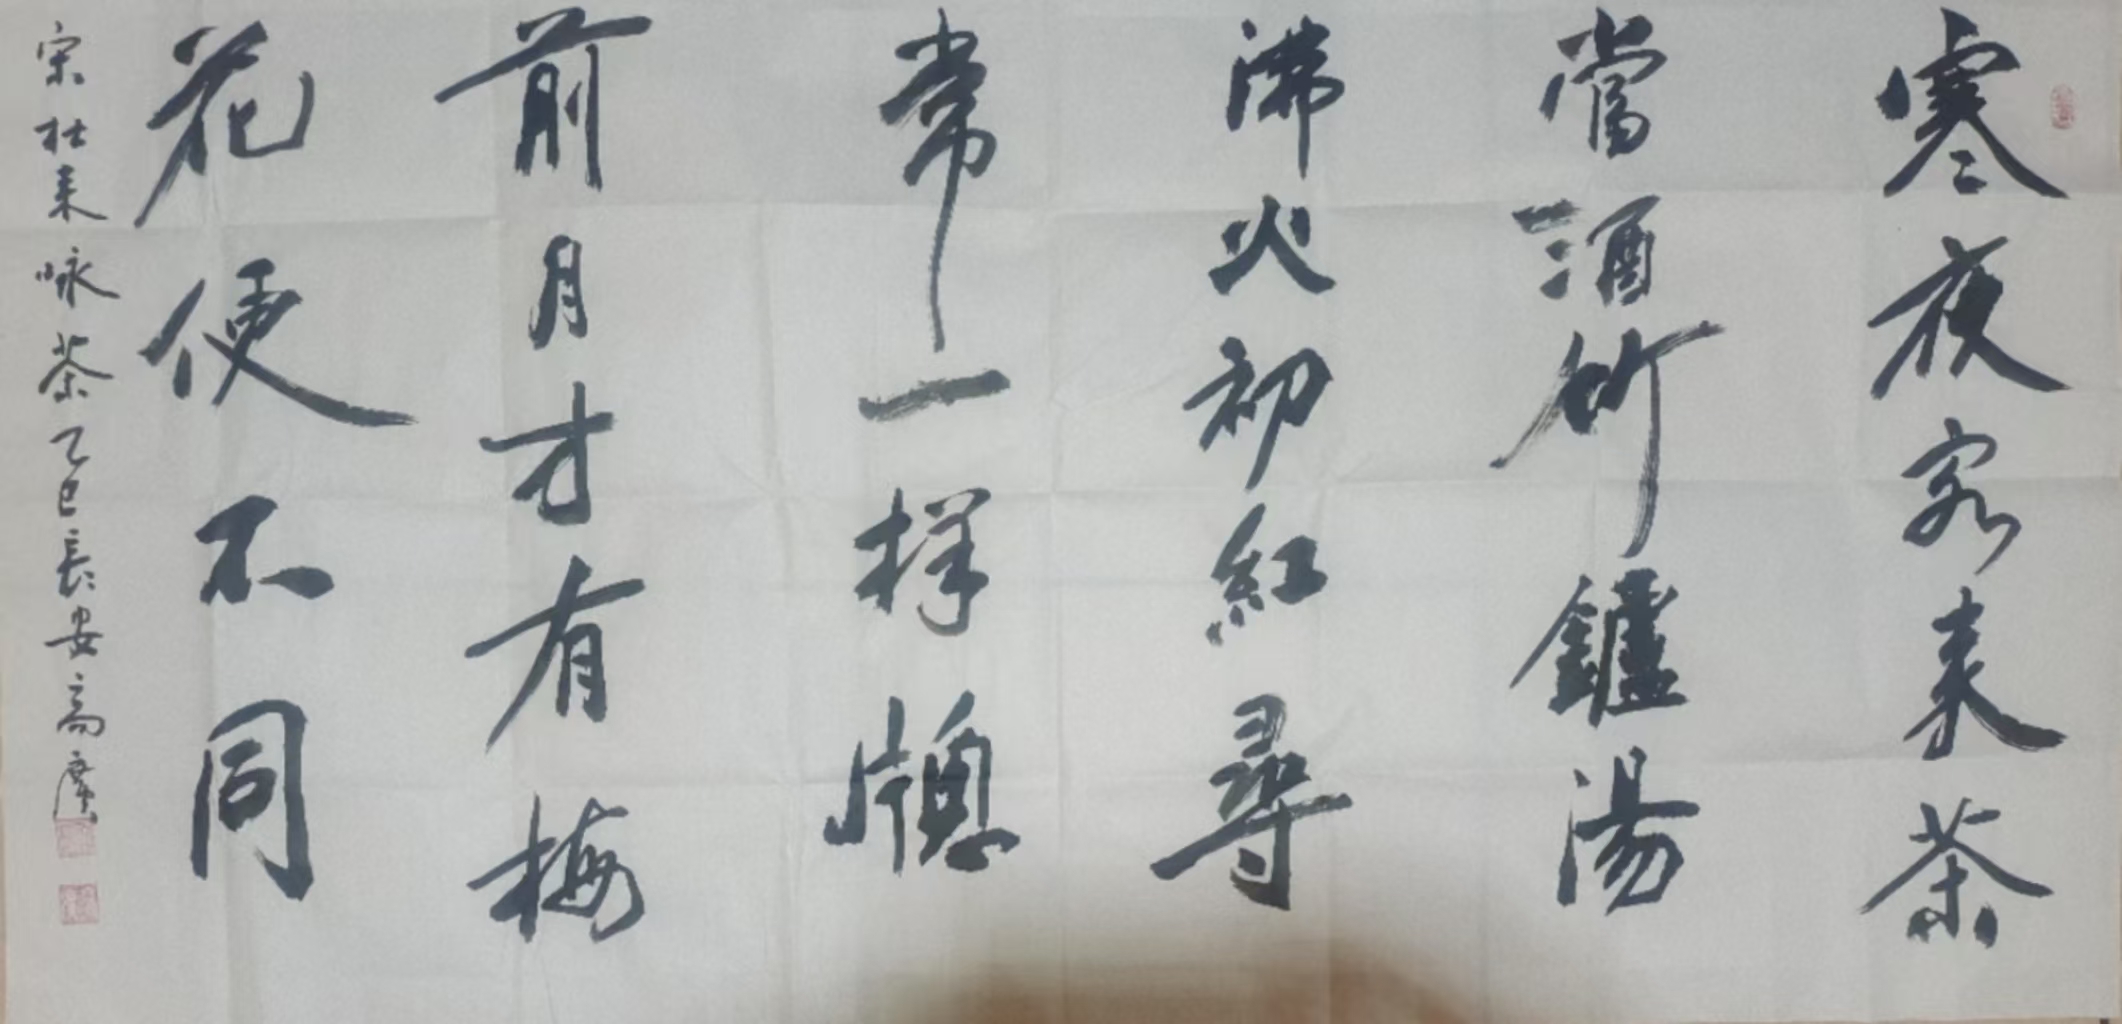 寒夜客来茶
當酒竹鑪湯
沸火初紅尋
常一样牕
前月才有梅
花便不同
宋杜耒咏茶乙巳長安高廣